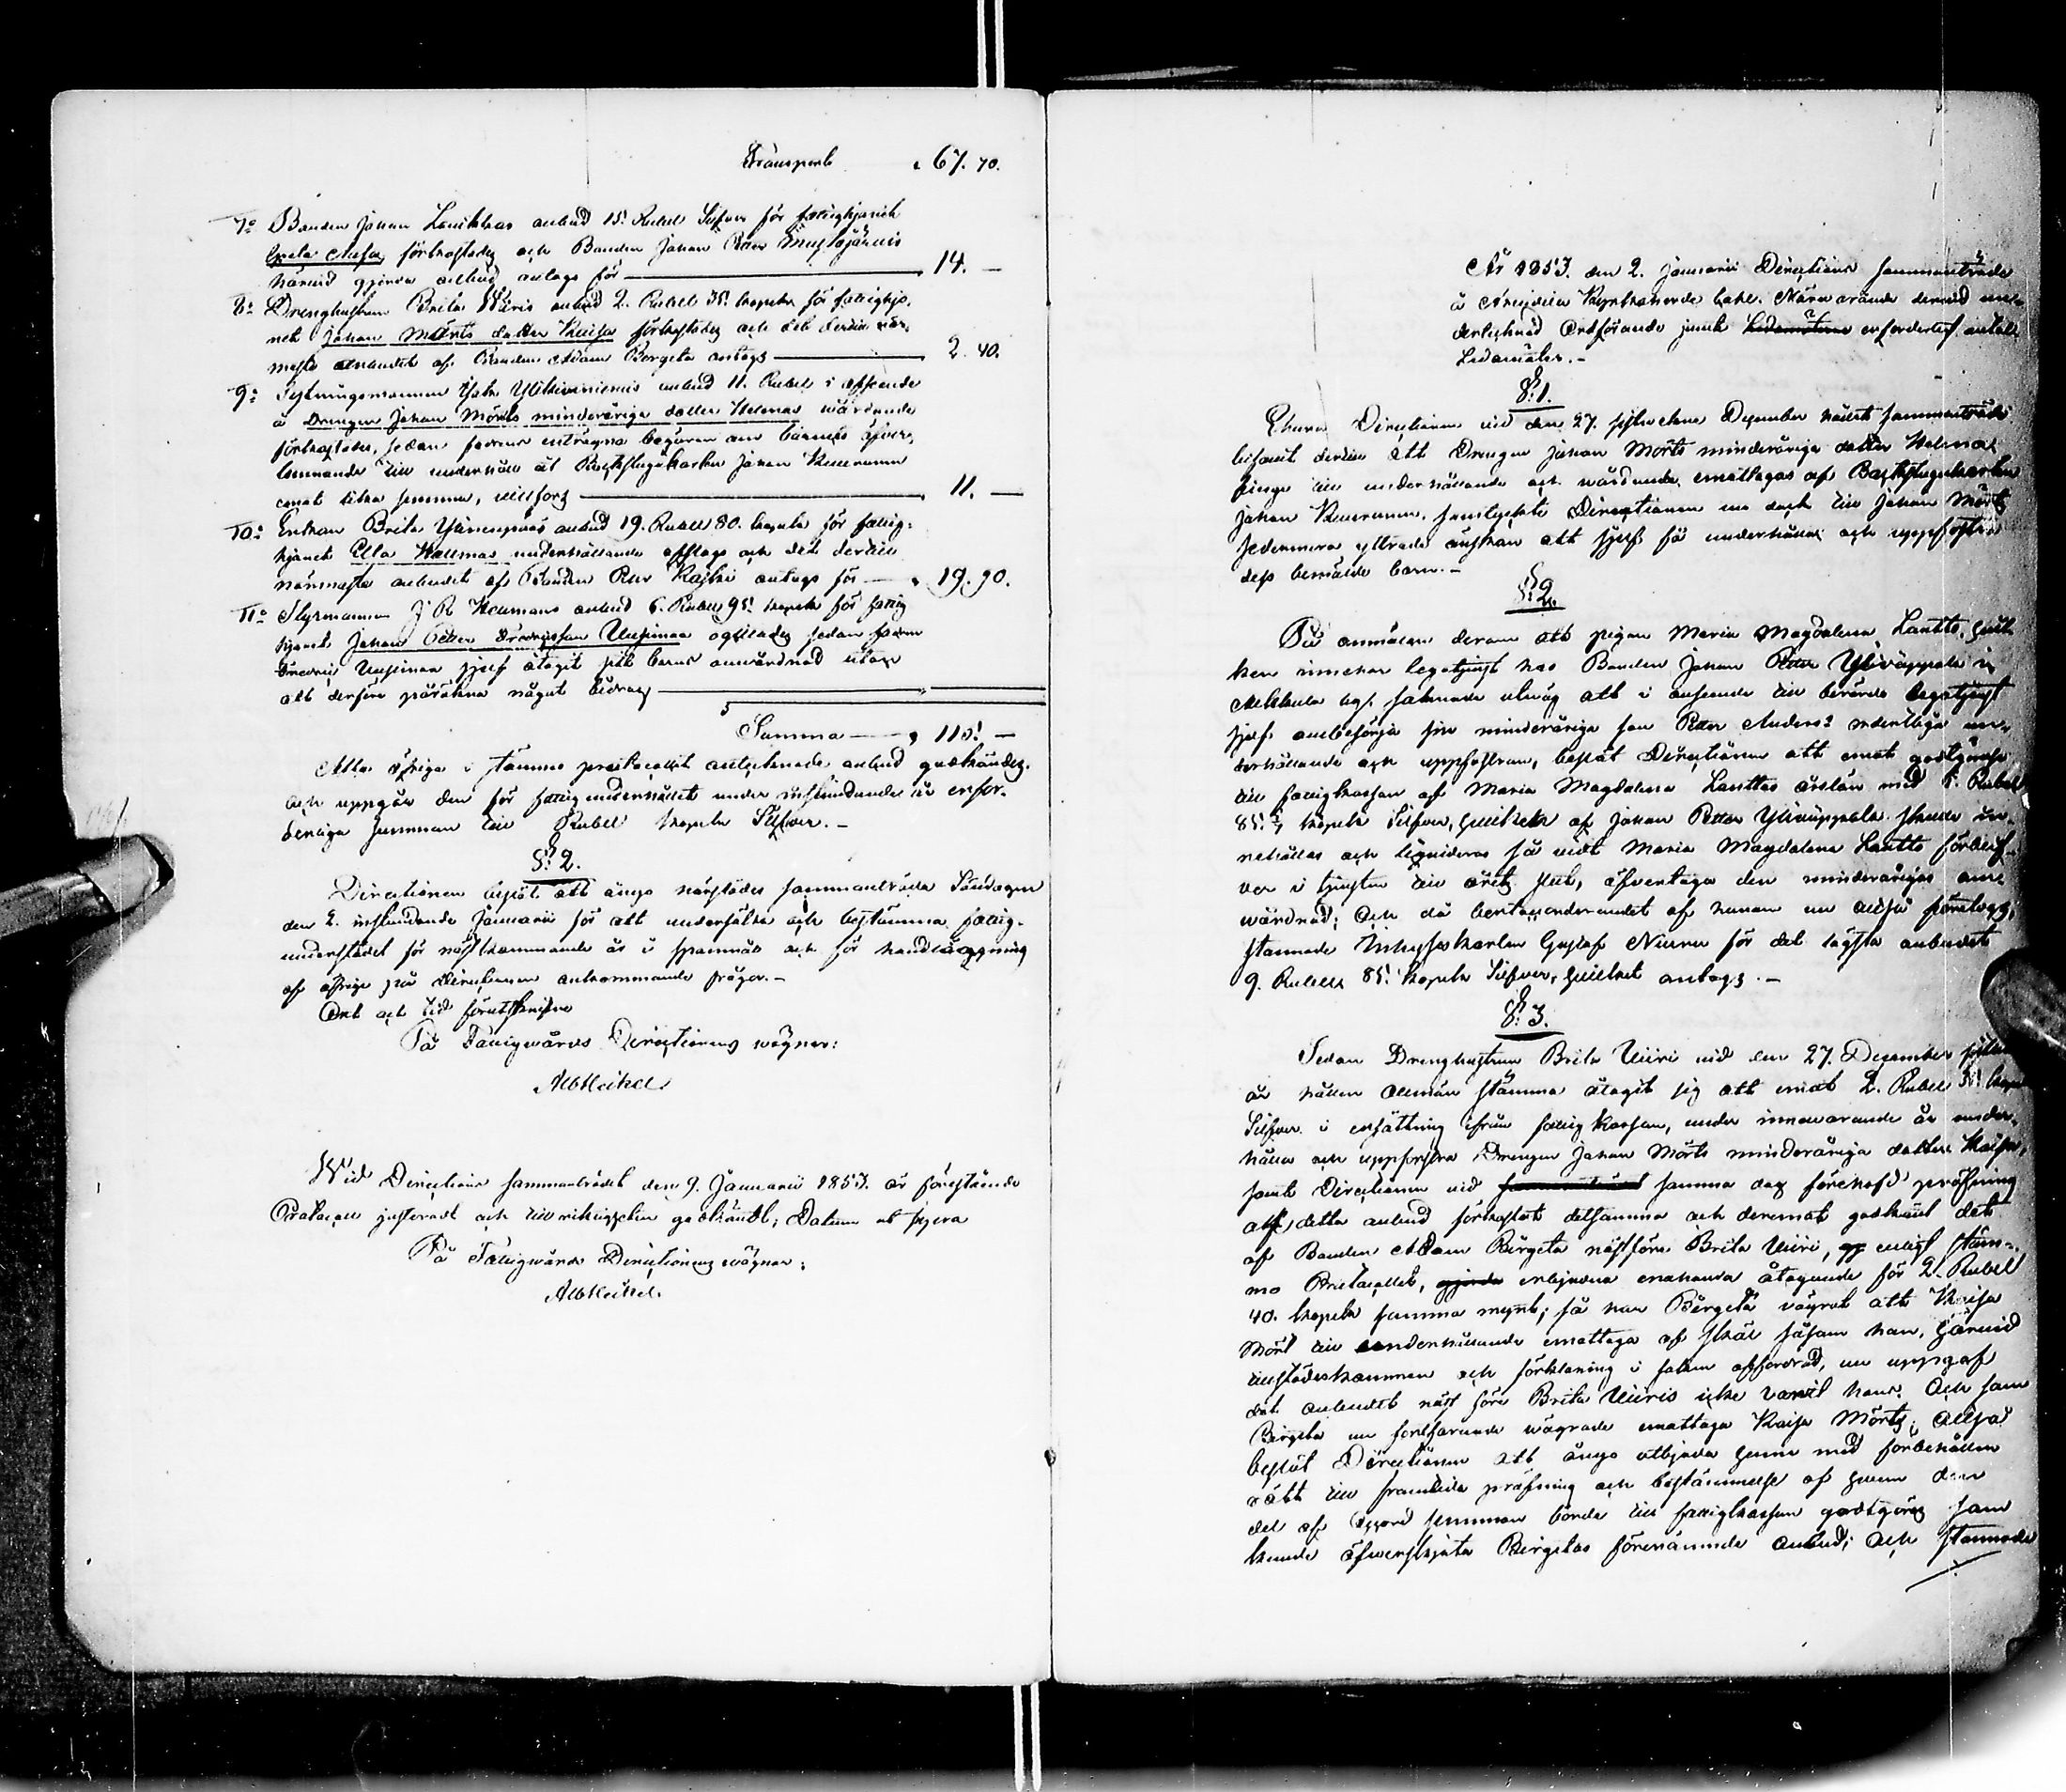 Transport " 67. 70.
7o Bonden Johan Lauikkas anbud 15. Rubel Silfver för fattighjonet
Greta Lusa förkastades och Bonden Johan Petter
härvid gjorda anbud antogs för 14. —
8o Drenghustrun Brita Wiiris anbud 2. Rubel 35. kopek för fattighjo-
net Johan Mörts dotter Kaisa förkastades och det dertill när-
maste anbudet af Bonden Adam Bergeta antogs 2. 40.
9o Sytningsmannen anbud 11. Rubel i afseende
å Drengen Johan Mörts minderåriga dotter Helenas vårdande
förkastades, sedan fadrens enträgna begäran om barnets öfver-
lemnande till underhåll åt Backstugukarlen Johan Keuramu
emot lika summa, villfors 11. —
10o Enkan Brita anbud 19. Rubel 80. kopek för fattig-
hjonet Ella underhållande afslogs och det dertill
närmaste anbudet af Bonden Petter antogs för " 19. 90.
11o Styrmannen J R Heumans anbud 6. Rubel 95. kopek för fattig
hjonet Johan Petter Fredricsson Uusimaa ogillades sedan fadren
Fredric Uusimaa sjelf åtagit sitt barns omvårdnad utan
att derföre påräkna något bidrag
Summa " 115. —
Alla öfriga i stämmo protocollet antecknade anbud godkändes
och uppgår den för fattigunderhållet under instundande år erfor-
derliga summan till Rubel kopek Silfver. —
§. 2.
Directionen beslöt att ånyo härstädes sammanträda Söndagen
den 2. instundande Januarii för att undersöka och bestämma fattig-
understödet för nästkommande år i spannmål och för handläggning
af öfrige på Directionen ankommande frågor. —
Ort och tid förutskrifne
På Fattigvårds Directionens vägnar:
Alb Heikel
Wid Directions sammanträdet den 9. Januarii 1853. är förestående
Protocoll justeradt och till riktigheten godkändt; Datum ut supra
På Fattigvårds Directionens vägnar:
Alb Heikel.
År 1853. den 2. Januarii Directions sammanträde
å Kyrkoherde bohl. Närvarande dervid un-
dertecknad Ordförande jemte Ledamöterne erforderligt antal
Ledamöter. —
§. 1.
Ehuru Directionen vid den 27. sistvekne December hållet sammanträde
bifallit dertill att Drengen Johan Mörts minderåriga dotter Helena
finge till underhållande och vårdande emottagas af Backstugukarlen
Johan Keuramu, samtyckte Directionen nu dock till Johan Mörts
sedermera yttrade önskan att sjelf få underhålla och uppfostra
dess bemälde barn. —
§. 2.
På anmälan derom att pigan Maria Magdalena Lantto, hvil-
ken innehar legotjenst hos Bonden Johan Petter Yliväppala i
by saknade utväg att i anseende till berörde legotjenst
sjelf ombesörja sin minderåriga son Petter Anders ordentliga un-
derhållande och uppfostran, beslöt Directionen att emot godtgörelse
till fattigkassan af Maria Magdalena Lanttos årslön med 5. Rubel
85. kopek Silfver, hvilket af Johan Petter Yliväppala skulle in-
nehållas och liqvideras så vidt Maria Magdalena Lantto förblif-
ver i tjensten till årets slut, öfvertaga den minderåriges om-
vårdnad; Och då af honom nu alltså företogs,
stannade Inhysekarlen Gustaf Niurru för det lägsta anbudet
9. Rubel 85. kopek Silfver, hvilket antogs. —
§. 3.
Sedan Drenghustrun Brita Uiiri vid den 27. December sistl.
år hållen allmän stämma åtagit sig att emot 2. Rubel 35. kopek
Silfver i ersättning ifrån fattigkassan, under innevarande år under-
hålla och uppfostra Drengen Johan Mörts minderåriga dotter Kaisa,
samt Directionen vid samma dag förehafd pröfning
af detta anbud förkastat detsamma och deremot godkänt det
af Bonden Adam Bergeta nästföre Brita Uiiri, enligt stäm-
mo Protocollet, gjorda erbjudna enahanda åtagande för 2. Rubel
40. kopek samma mynt; så har Bergeta vägrat att Kaisa
Mört till underhållande emottaga af skäl såsom han, härvid
tillstädeskommen och förklaring i saken affordrad, nu uppgaf
det anbudet näst före Brita Uiiris icke varit hans. Och som
Bergeta nu fortfarande vägrade emottaga Kaisa Mört; alltså
beslöt Directionen att ånyo utbjuda henne med förbehållen
rätt till framtida pröfning och bestämmelse af hvem den
del af accord summan borde till fattigkassan godtgöras som
kunde öfverskjuta Bergetas förenämnde anbud; och stannade